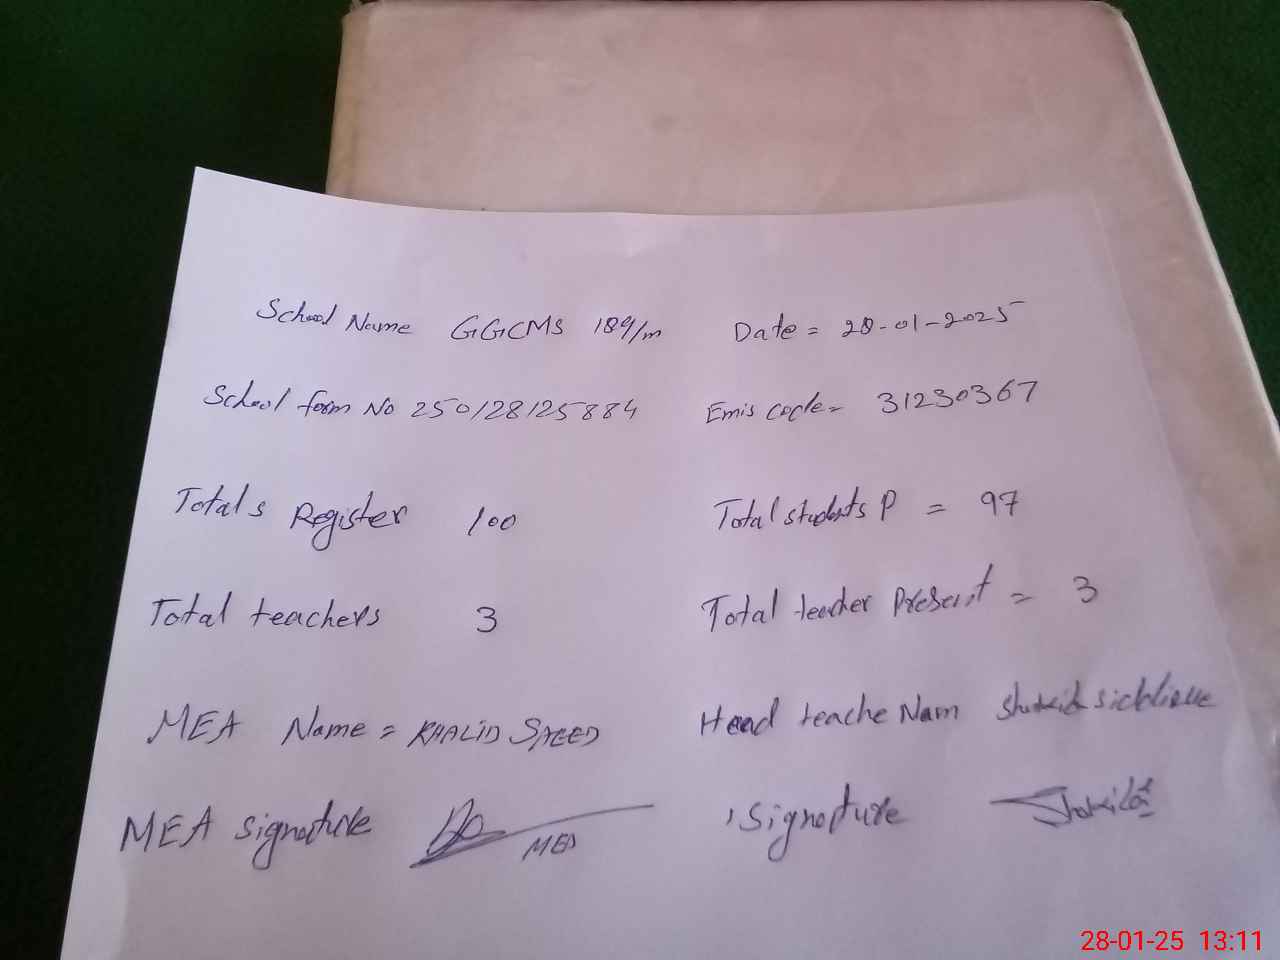 School Name GGCMS 189/m Date = 28-01-2025
School form No 250128125884 Emis code = 31230367
Totals Register 100 Total students P = 97
Total teachers 3 Total teacher Present = 3
MEA Name = KHALID SAEED Head teache Nam
MEA signature MEA signature
28-01-25 13:11